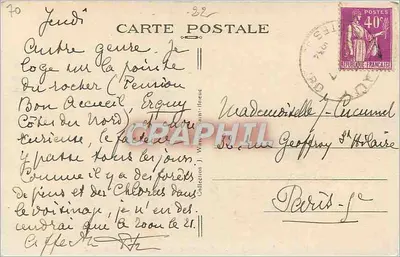 70
-22-
CARTE POSTALE
POSTES
40c
RÉPUBLIQUE FRANÇAISE
Jeudi
Autre genre. Je
loge sur la pointe
du rocher (Pension
Bon Accueil, Erquy
Côtes du Nord,
curieuse, le facteur
y passe tous les jours.
Comme il y a des forêts
de pins et des Chlores dans
le voisinage, je n'en des-
cendrai que le 20 ou le 21.
Mademoiselle J.
rue Geoffroy St Hilaire
Paris-5e
CPAPHIL
Collection J.